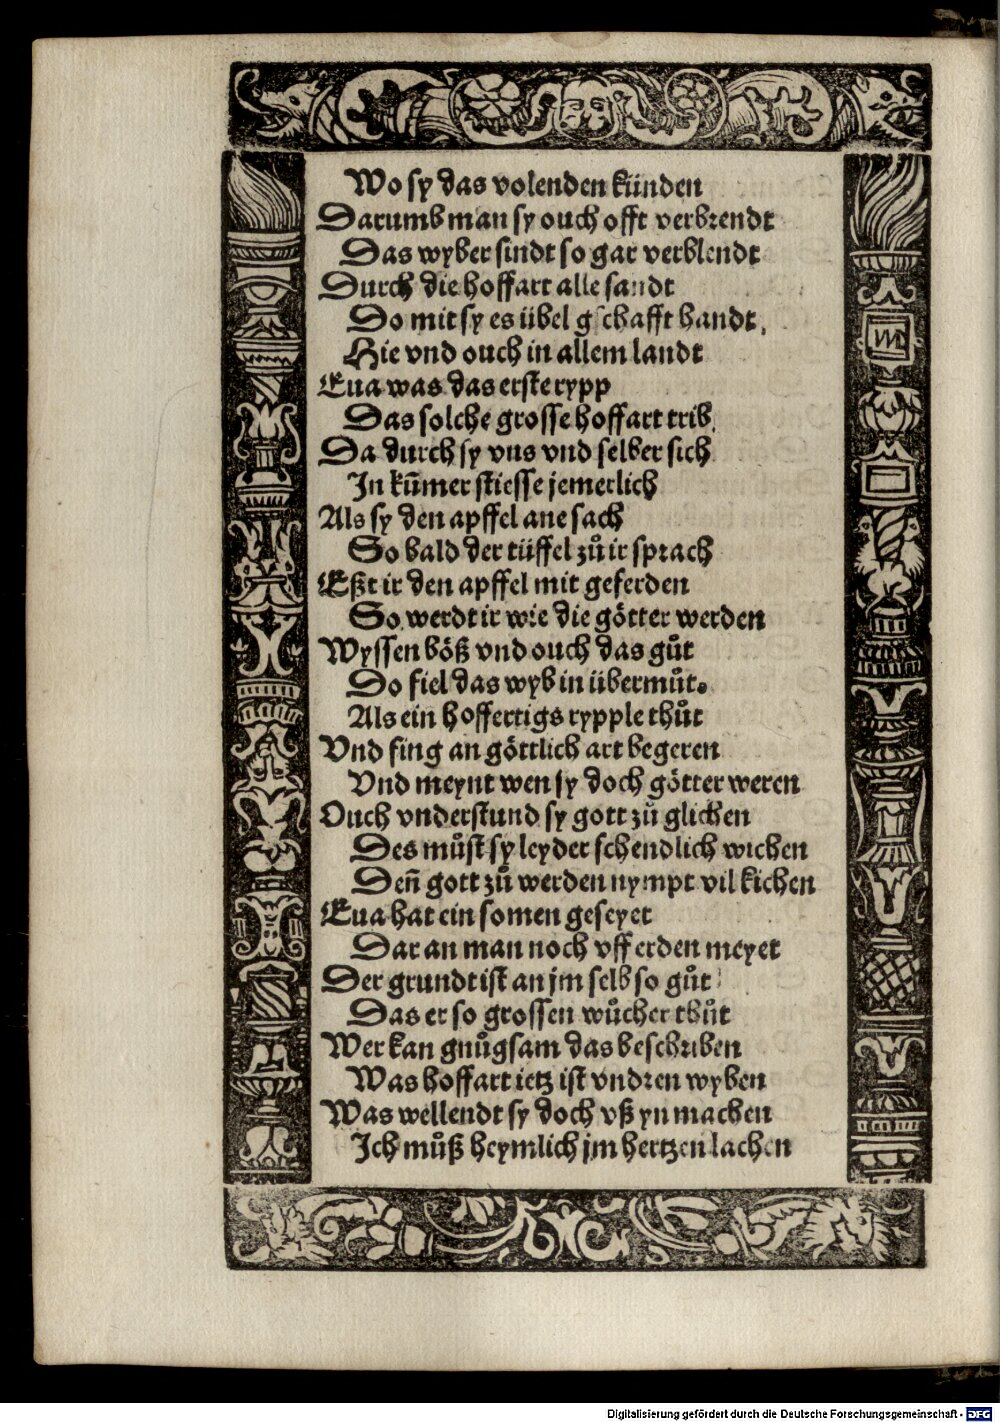 Wo sy das volenden künden
Darumb man sy ouch offt verbrendt
Das wyber sindt so gar verblendt
Durch die hoffart alle sandt
Do mit sy es übel gschafft handt,
Hie vnd ouch in allem landt
Eua was das erste rypp
Das solche grosse hoffart trib,
Da durch sy vns vnd selber sich
In kūmer stiesse jemerlich
Als sy den apffel ane sach
So bald der tüffel zů ir sprach
Eßt ir den apffel mit geferden
So werdt ir wie die götter werden
Wyssen böß vnd ouch das gůt
Do fiel das wyb in übermůt.
Als ein hoffertigs rypple thůt
Vnd fing an göttlich art begeren
Vnd meynt wen sy doch götter weren
Ouch vnderstund sy gott zů glichen
Des můst sy leyder schendlich wichen
Deñ gott zů werden nympt vil kichen
Eua hat ein somen geseyet
Dar an man noch vff erden meyet
Der grundt ist an jm selb so gůt
Das er so grossen wůcher thůt
Wer kan gnůgsam das beschriben
Was hoffart ietz ist vndren wyben
Was wellendt sy doch vß yn machen
Ich můß heymlich jm hertzen lachen
Digitalisierung gefördert durch die Deutsche Forschungsgemeinschaft - DFG